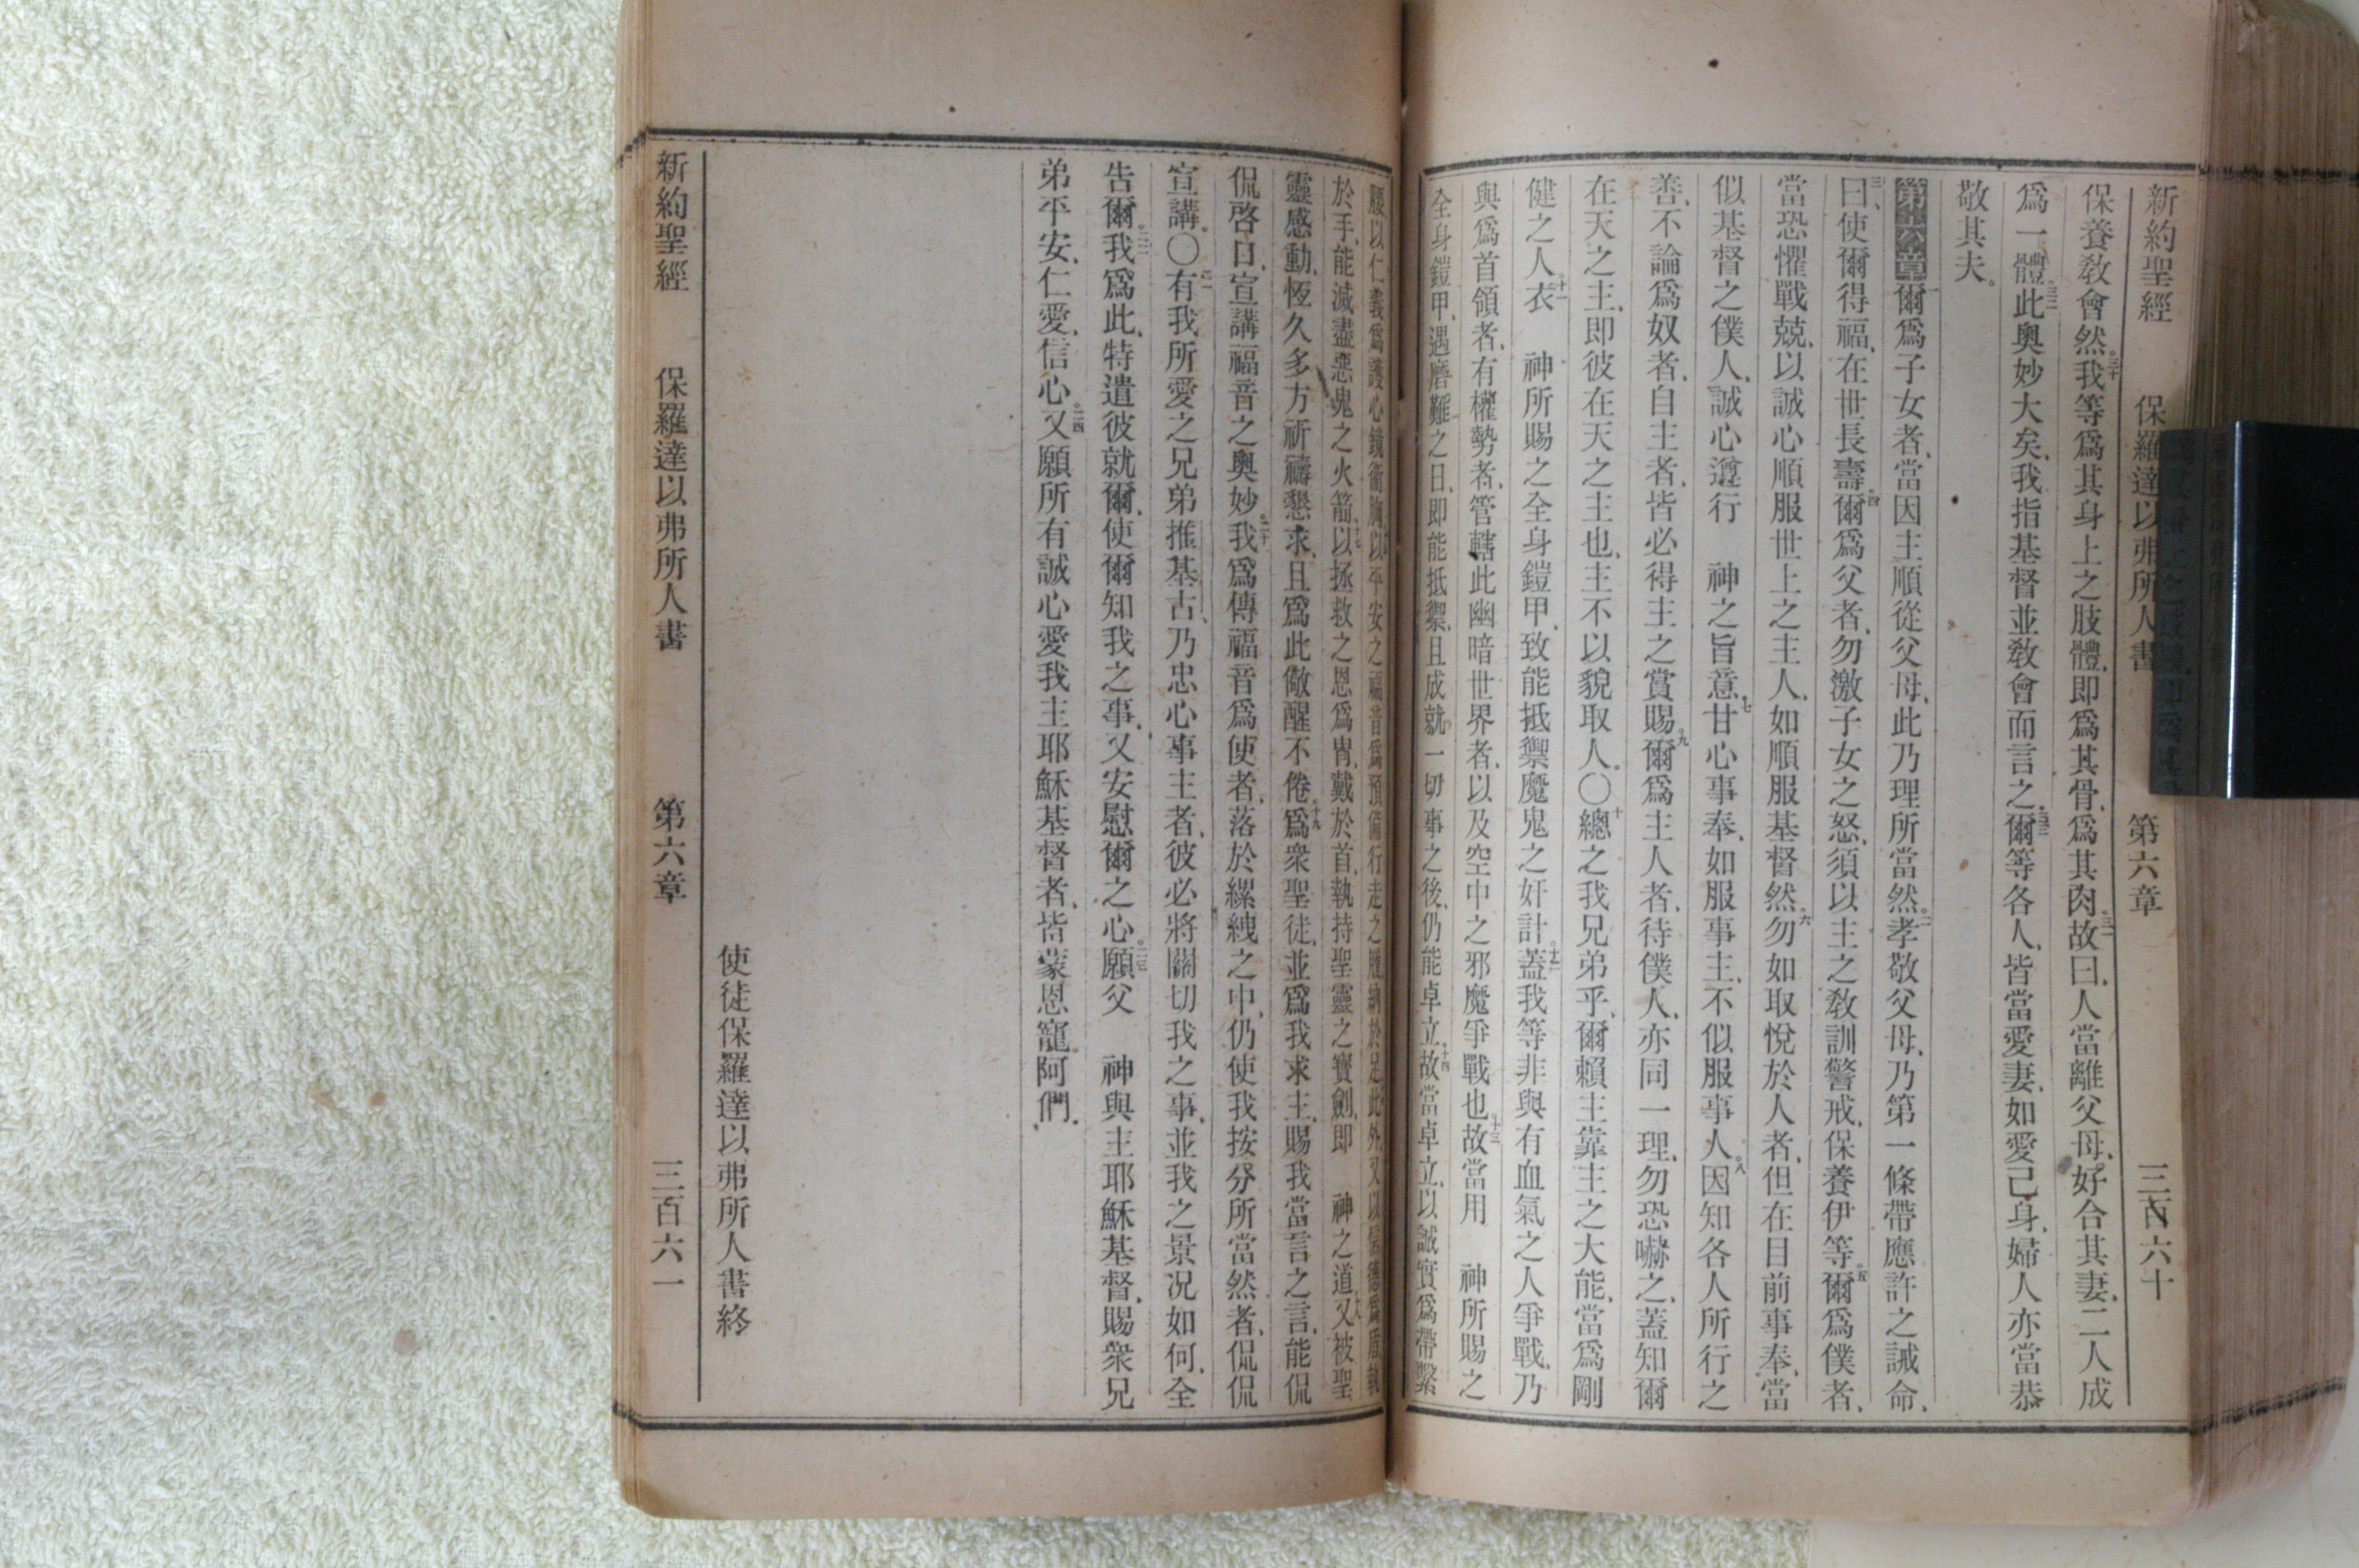 新約聖經 保羅達以弗所人書 第六章 三百六十
保養教會然、三十我等爲其身上之肢體、即爲其骨、爲其肉。三一故曰、人當離父母、好合其妻、二人成
爲一體。三二此奧妙大矣、我指基督並教會而言之。三三爾等各人、皆當愛妻、如愛己身、婦人亦當恭
敬其夫。
第六章一爾爲子女者、當因主順從父母、此乃理所當然。二孝敬父母、乃第一條帶應許之誡命、
三曰、使爾得福、在世長壽。四爾爲父者、勿激子女之怒、須以主之教訓警戒、保養伊等。五爾爲僕者、
當恐懼戰兢、以誠心順服世上之主人、如順服基督然。六勿如取悅於人者、但在目前事奉、當
似基督之僕人、誠心遵行 神之旨意、七甘心事奉、如服事主、不似服事人。八因知各人所行之
善、不論爲奴者、自主者、皆必得主之賞賜。九爾爲主人者、待僕人、亦同一理、勿恐嚇之、蓋知爾
在天之主、即彼在天之主也、主不以貌取人。〇十總之我兄弟乎、爾賴主靠主之大能、當爲剛
健之人。十一衣 神所賜之全身鎧甲、致能抵禦魔鬼之奸計。十二蓋我等非與有血氣之人爭戰、乃
與爲首領者、有權勢者、管轄此幽暗世界者、以及空中之邪魔爭戰也。十三故當用 神所賜之
全身鎧甲、遇磨難之日、即能抵禦、且成就一切事之後、仍能卓立。十四故當卓立、以誠實爲帶繫
腰、以仁義爲護心鏡衞胸、以平安之福音爲預備行走之履納於足、此外又以信德爲盾執
於手、能滅盡惡鬼之火箭。十七以拯救之恩爲冑、戴於首、執持聖靈之寶劍、即 神之道。十八又被聖
靈感動、恆久多方祈禱懇求、且爲此儆醒不倦。十九爲衆聖徒、並爲我求主、賜我當言之言、能侃
侃啓口、宣講福音之奧妙。二十我爲傳福音爲使者、落於縲絏之中、仍使我按分所當然者、侃侃
宣講。〇二一有我所愛之兄弟推基古、乃忠心事主者、彼必將關切我之事、並我之景况如何、全
告爾。二二我爲此、特遣彼就爾、使爾知我之事、又安慰爾之心。二三願父 神與主耶穌基督、賜衆兄
弟平安、仁愛、信心。二四又願所有誠心愛我主耶穌基督者、皆蒙恩寵。阿們、
使徒保羅達以弗所人書終
新約聖經 保羅達以弗所人書 第六章 三百六一